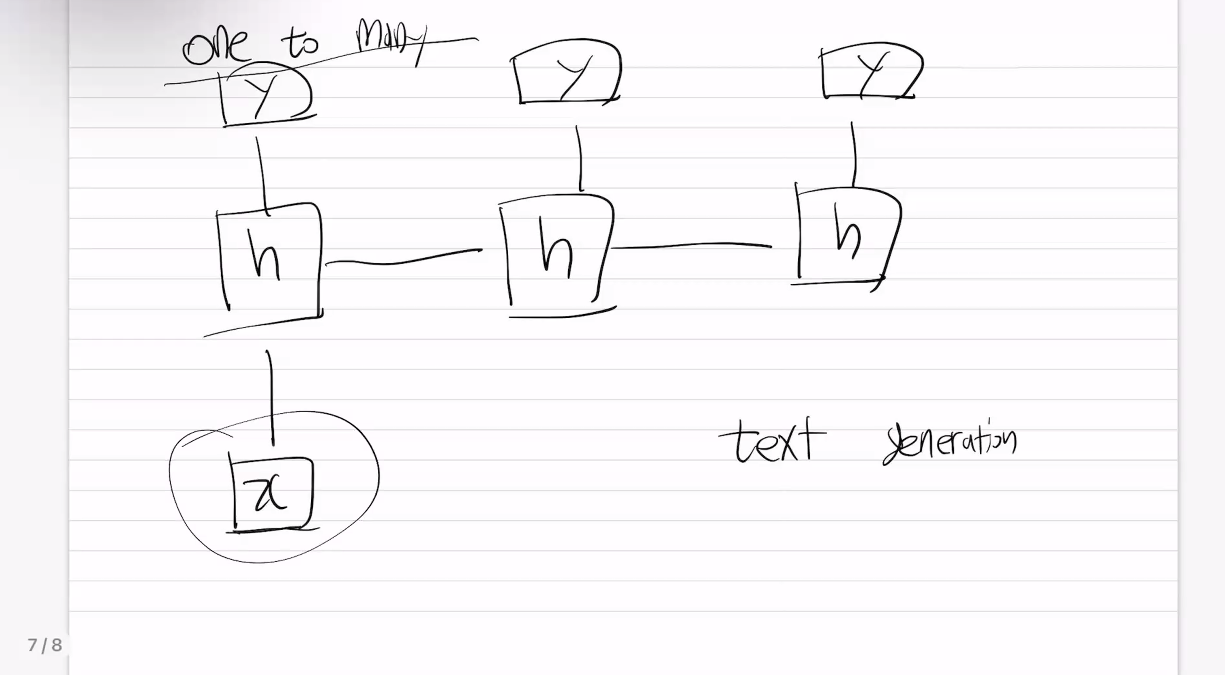 one to many
y y y
h h h
x
text generation
7/8